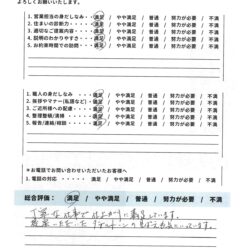 よろしくお願いいたします。
1. 営業担当の身だしなみ・・・ 満足 / やや満足 / 普通 / 努力が必要 / 不満
2. 住まいの診断力・・・・・ 満足 / やや満足 / 普通 / 努力が必要 / 不満
3. 適切なご提案内容・・・・ 満足 / やや満足 / 普通 / 努力が必要 / 不満
4. 説明のわかりやすさ・・・ 満足 / やや満足 / 普通 / 努力が必要 / 不満
5. お約束時間での訪問・・・ 満足 / やや満足 / 普通 / 努力が必要 / 不満
1. 職人の身だしなみ・・・・ 満足 / やや満足 / 普通 / 努力が必要 / 不満
2. 挨拶やマナー(私語など)・ 満足 / やや満足 / 普通 / 努力が必要 / 不満
3. ご近所様への配慮・・・・ 満足 / やや満足 / 普通 / 努力が必要 / 不満
4. 整理整頓/清掃・・・・・ 満足 / やや満足 / 普通 / 努力が必要 / 不満
5. 報告/連絡/相談・・・・・ 満足 / やや満足 / 普通 / 努力が必要 / 不満
＊お電話でお問い合わせいただいたお客様へ
1. 電話の対応・・・・・ 満足 / やや満足 / 普通 / 努力が必要 / 不満
総合評価： 満足 / やや満足 / 普通 / 努力が必要 / 不満
丁寧な仕事で仕上がりに満足しています。